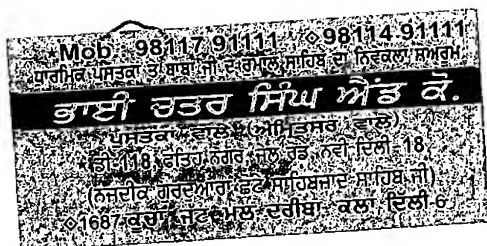 Mob. 98117 91111, 98114 91111
ਧਾਰਮਿਕ ਪੁਸਤਕਾਂ ਤੇ ਬਾਬਾ ਜੀ ਦੇ ਰੁਮਾਲਾ ਸਾਹਿਬ ਦਾ ਨਿਵੇਕਲਾ ਸ਼ੋਅਰੂਮ
ਭਾਈ ਚਤਰ ਸਿੰਘ ਐਂਡ ਕੋ.
ਪੁਸਤਕਾਂ ਵਾਲੇ (ਅੰਮ੍ਰਿਤਸਰ ਵਾਲੇ)
ਡੀ-118, ਫਤਿਹ ਨਗਰ, ਜੇਲ ਰੋਡ, ਨਵੀਂ ਦਿੱਲੀ-18
(ਨਜ਼ਦੀਕ ਗੁਰਦੁਆਰਾ ਛੋਟੇ ਸਾਹਿਬਜ਼ਾਦੇ ਸਾਹਿਬ ਜੀ)
1687-ਕੂਚਾ ਜਟਮਲ-ਦਰੀਬਾ ਕਲਾਂ ਦਿੱਲੀ-6